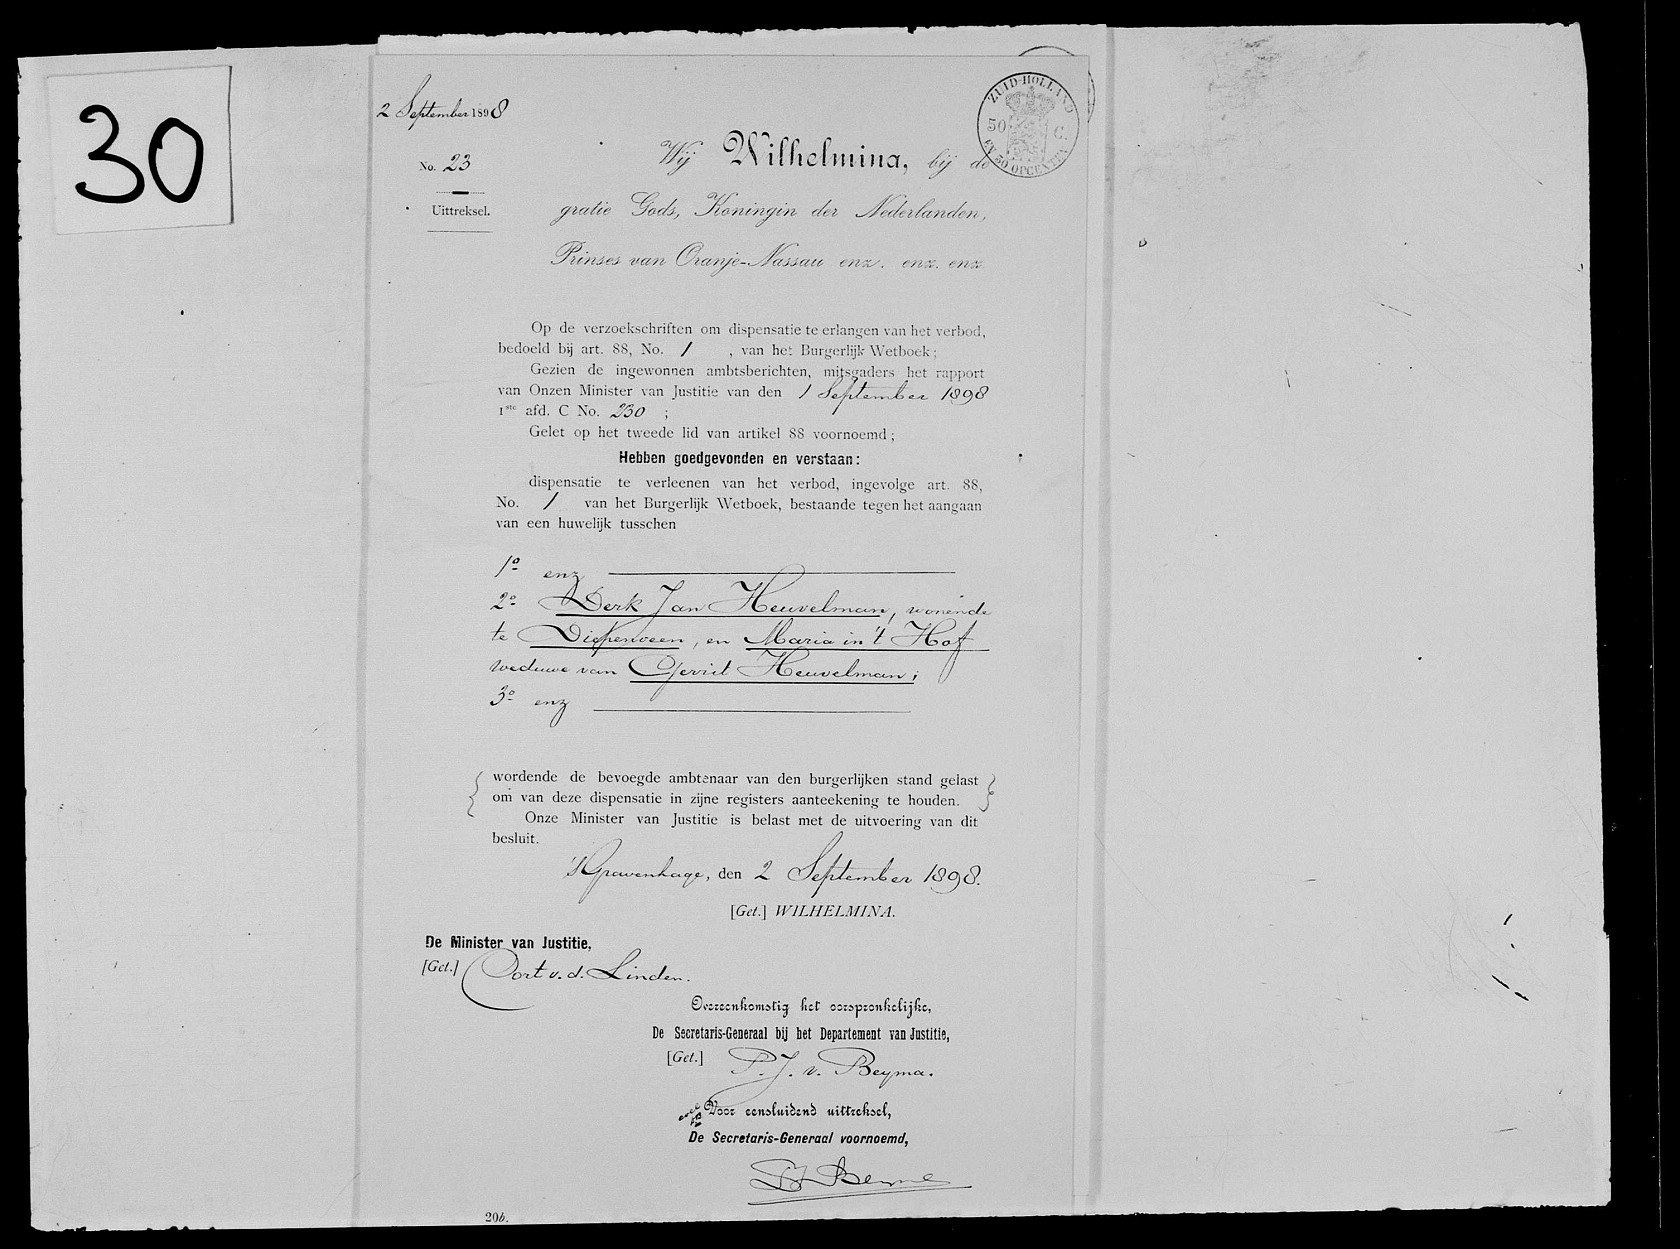 30
2 September 1898
No. 23
Uittreksel.
ZUID-HOLLAND
50 C.
EN 50 OPCENTEN
Wij Wilhelmina, bij de
gratie Gods, Koningin der Nederlanden,
Prinses van Oranje-Nassau enz. enz. enz.
Op de verzoekschriften om dispensatie te erlangen van het verbod,
bedoeld bij art. 88, No. 1 , van het Burgerlijk Wetboek;
Gezien de ingewonnen ambtsberichten, mitsgaders het rapport
van Onzen Minister van Justitie van den 1 September 1898
1ste afd. C No. 230 ;
Gelet op het tweede lid van artikel 88 voornoemd;
Hebben goedgevonden en verstaan:
dispensatie te verleenen van het verbod, ingevolge art. 88,
No. 1 van het Burgerlijk Wetboek, bestaande tegen het aangaan
van een huwelijk tusschen
1o enz
2o Derk Jan Heuvelman, wonende
te Diepenveen, en Maria in 't Hof
weduwe van Gerrit Heuvelman;
3o enz
wordende de bevoegde ambtenaar van den burgerlijken stand gelast
om van deze dispensatie in zijne registers aanteekening te houden.
Onze Minister van Justitie is belast met de uitvoering van dit
besluit.
's Gravenhage, den 2 September 1898.
[Get.] WILHELMINA.
De Minister van Justitie,
[Get.] Cort v. d. Linden.
Overeenkomstig het oorspronkelijke,
De Secretaris-Generaal bij het Departement van Justitie,
[Get.] P. J. v. Beyma.
Voor eensluidend uittreksel,
De Secretaris-Generaal voornoemd,
20b.